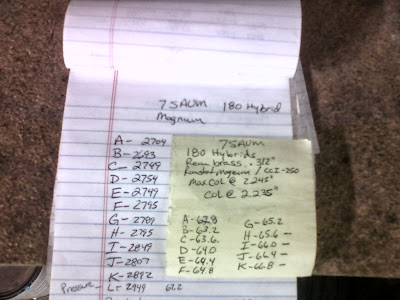 7SAUM 180 Hybrid
Magnum
A- 2704
B- 2693
C- 2749
D- 2754
E- 2749
F- 2795
G- 2789
H- 2795
I- 2849
J- 2807
K- 2892
Pressure L- 2949 67.2
7SAUM
180 Hybrids
Rem brass .312"
Magnum / CCI-250
Max COL @ 2.245"
COL @ 2.235"
A-62.8
B-63.2
C-63.6
D-64.0
E-64.4
F-64.8
G-65.2
H-65.6 -
I-66.0 -
J-66.4 -
K-66.8 -